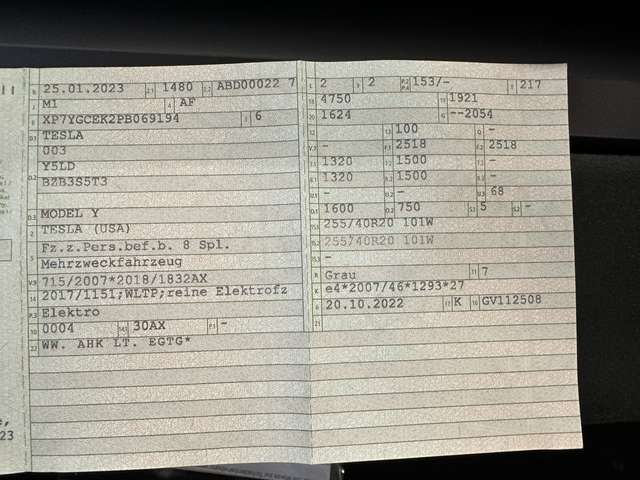 B 25.01.2023 2.1 1480 2.2 ABD00022 7
J M1 4 AF
E XP7YGCEK2PB069194 3 6
D.1 TESLA
003
D.2 Y5LD
BZB3S5T3
D.3 MODEL Y
2 TESLA (USA)
5 Fz.z.Pers.bef.b. 8 Spl.
Mehrzweckfahrzeug
V.9 715/2007*2018/1832AX
14 2017/1151;WLTP;reine Elektrofz
P.3 Elektro
10 0004 14.1 30AX P.1 -
22 WW. AHK LT. EGTG*
L 2 9 2 P.2 P.4 153/- T 217
18 4750 19 1921
20 1624 G --2054
12 - 13 100 Q -
V.7 - F.1 2518 F.2 2518
7.1 1320 7.2 1500 7.3 -
8.1 1320 8.2 1500 8.3 -
U.1 - U.2 - U.3 68
O.1 1600 O.2 750 S.1 5 S.2 -
15.1 255/40R20 101W
15.2 255/40R20 101W
15.3 -
R Grau 11 7
K e4*2007/46*1293*27
6 20.10.2022 17 K 16 GV112508
21
23